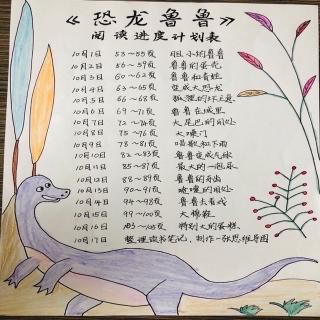 《恐龙鲁鲁》
阅读进度计划表
10月1日 53—55页 胆小的鲁鲁
10月2日 56—59页 鲁鲁的蛋花
10月3日 60—62页 鲁鲁和青蛙
10月4日 63—65页 变成大恐龙
10月5日 66—68页 狐狸的坏主意
10月6日 69—71页 鲁鲁在城里
10月7日 72—74页 大尾巴的用处
10月8日 75—76页 大嗓门
10月9日 78—81页 唱歌和下雨
10月10日 82—83页 鲁鲁变成气球
10月11日 85—87页 最大的一泡尿
10月12日 88—89页 鲁鲁的牙齿
10月13日 90—91页 喷嚏的用处
10月14日 94—98页 鲁鲁去看戏
10月15日 99—100页 大棉鞋
10月16日 103—105页 特别大的蛋糕
10月17日 整理读书笔记,制作一张思维导图